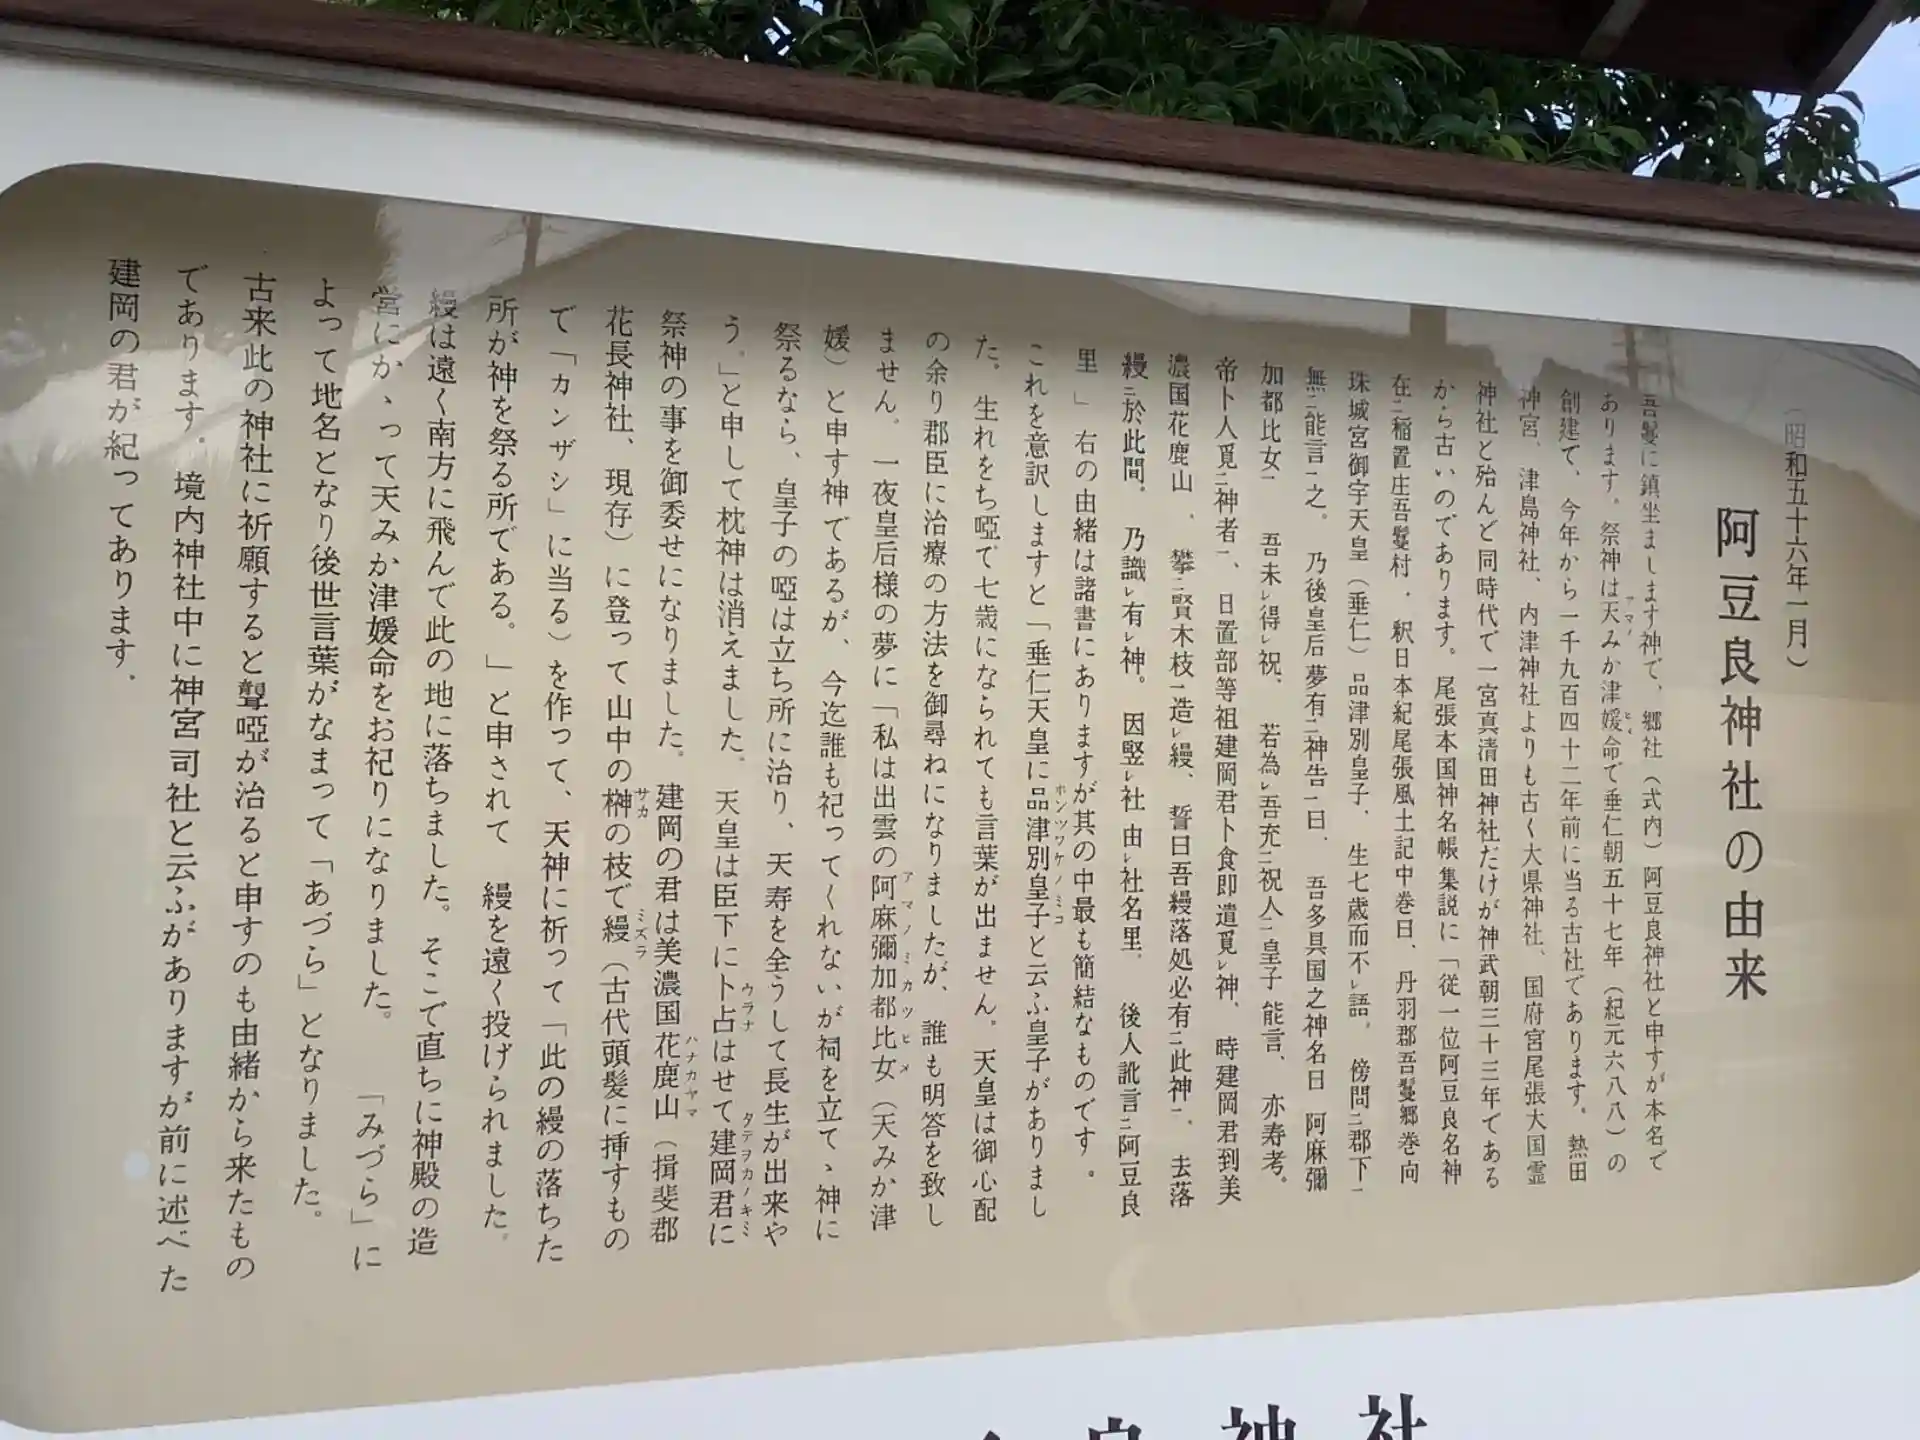 （昭和五十六年一月）
阿豆良神社の由来
吾鬘に鎮坐まします神で、郷社（式内）阿豆良神社と申すが本名で
あります。祭神は天みか津媛命で垂仁朝五十七年（紀元六八八）の
創建で、今年から一千九百四十二年前に当る古社であります。熱田
神宮、津島神社、内津神社よりも古く大県神社、国府宮尾張大国霊
神社と殆んど同時代で一宮真清田神社だけが神武朝三十三年である
から古いのであります。尾張本国神名帳集説に「従一位阿豆良名神
在ニ稲置庄吾鬘村．釈日本紀尾張風土記中巻曰、丹羽郡吾鬘郷巻向
珠城宮御宇天皇（垂仁）品津別皇子．生七歳而不レ語．傍問ニ郡下一
無ニ能言一之．乃後皇后夢有ニ神告一曰．吾多具国之神名曰 阿麻彌
加都比女一 吾未レ得レ祝、若為レ吾充ニ祝人一皇子能言、亦寿考。
帝卜人覓ニ神者一、日置部等祖建岡君卜食即遣覓レ神、時建岡君到美
濃国花鹿山．攀ニ賢木枝一造レ縵、誓曰吾縵落処必有ニ此神一．去落
縵ニ於此間．乃識レ有レ神。因竪レ社 由レ社名里．後人訛言ニ阿豆良
里」右の由緒は諸書にありますが其の中最も簡結なものです．
これを意訳しますと「垂仁天皇に品津別皇子と云ふ皇子がありまし
た。生れをち啞で七歳になられても言葉が出ません。天皇は御心配
の余り郡臣に治療の方法を御尋ねになりましたが、誰も明答を致し
ません。一夜皇后様の夢に「私は出雲の阿麻彌加都比女（天みか津
媛）と申す神であるが、今迄誰も祀ってくれないが祠を立てゝ神に
祭るなら、皇子の啞は立ち所に治り、天寿を全うして長生が出来や
う。」と申して枕神は消えました。天皇は臣下に卜占はせて建岡君に
祭神の事を御委せになりました。建岡の君は美濃国花鹿山（揖斐郡
花長神社、現存）に登って山中の榊の枝で縵（古代頭髪に挿すもの
で「カンザシ」に当る）を作って、天神に祈って「此の縵の落ちた
所が神を祭る所である。」と申されて 縵を遠く投げられました。
縵は遠く南方に飛んで此の地に落ちました。そこで直ちに神殿の造
営にかゝって天みか津媛命をお祀りになりました。「みづら」に
よって地名となり後世言葉がなまって「あづら」となりました。
古来此の神社に祈願すると聾啞が治ると申すのも由緒から来たもの
であります．境内神社中に神宮司社と云ふがありますが前に述べた
建岡の君が紀ってあります．
良神社